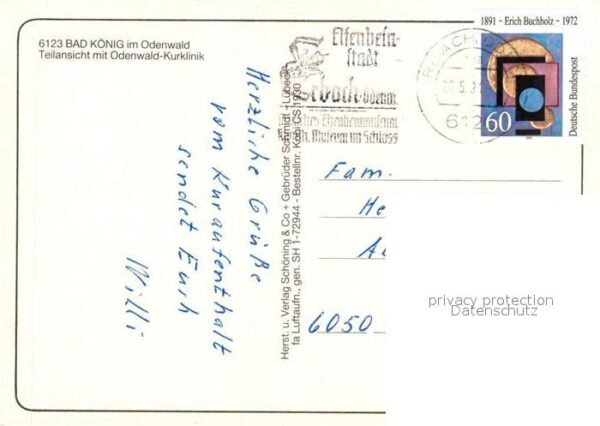 6123 BAD KÖNIG im Odenwald
Teilansicht mit Odenwald-Kurklinik
Herzliche Grüße
vom Kuraufenthalt
sendet Euch
Willi
Herst. u. Verlag Schöning & Co + Gebrüder Schmidt - Lübeck
fa Luftaufn., gen. SH 1-72944 - Bestellnr. Köh CS 1930
Elfenbein-
stadt
Erbach
Museum im Schloss
612
1891 - Erich Buchholz - 1972
60
Deutsche Bundespost
Fam.
He
6050
privacy protection
Datenschutz